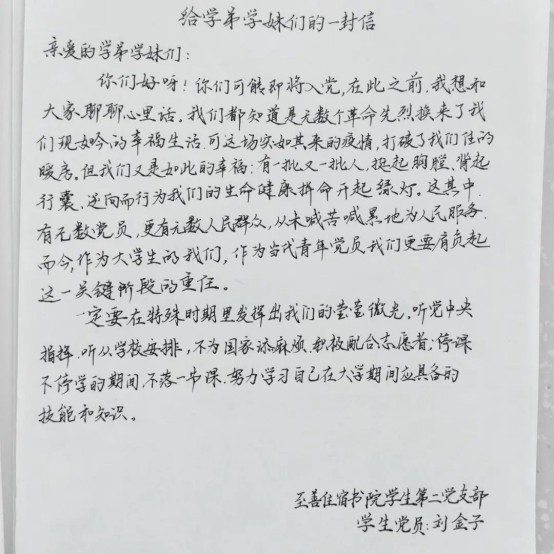 给学弟学妹们的一封信
亲爱的学弟学妹们:
你们好呀!你们可能即将入党,在此之前,我想和
大家聊聊心里话。我们都知道是无数个革命先烈换来了我
们现如今的幸福生活,可这场突如其来的疫情,打破了我们住的
暖房。但我们又是如此的幸福:有一批又一批人,挺起胸膛,背起
行囊,逆向而行为我们的生命健康拼命开起绿灯。这其中,
有无数党员,更有无数人民群众,从未喊苦喊累地为人民服务.
而今,作为大学生的我们,作为当代青年党员我们更要肩负起
这一关键阶段的重任。
一定要在特殊时期里发挥出我们的萤萤微光.听党中央
指挥.听从学校安排,不为国家添麻烦.积极配合志愿者;停课
不停学的期间,不落一步课.努力学习自己在大学期间应具备的
技能和知识。
至善住宿书院学生第二党支部
学生党员:刘金子